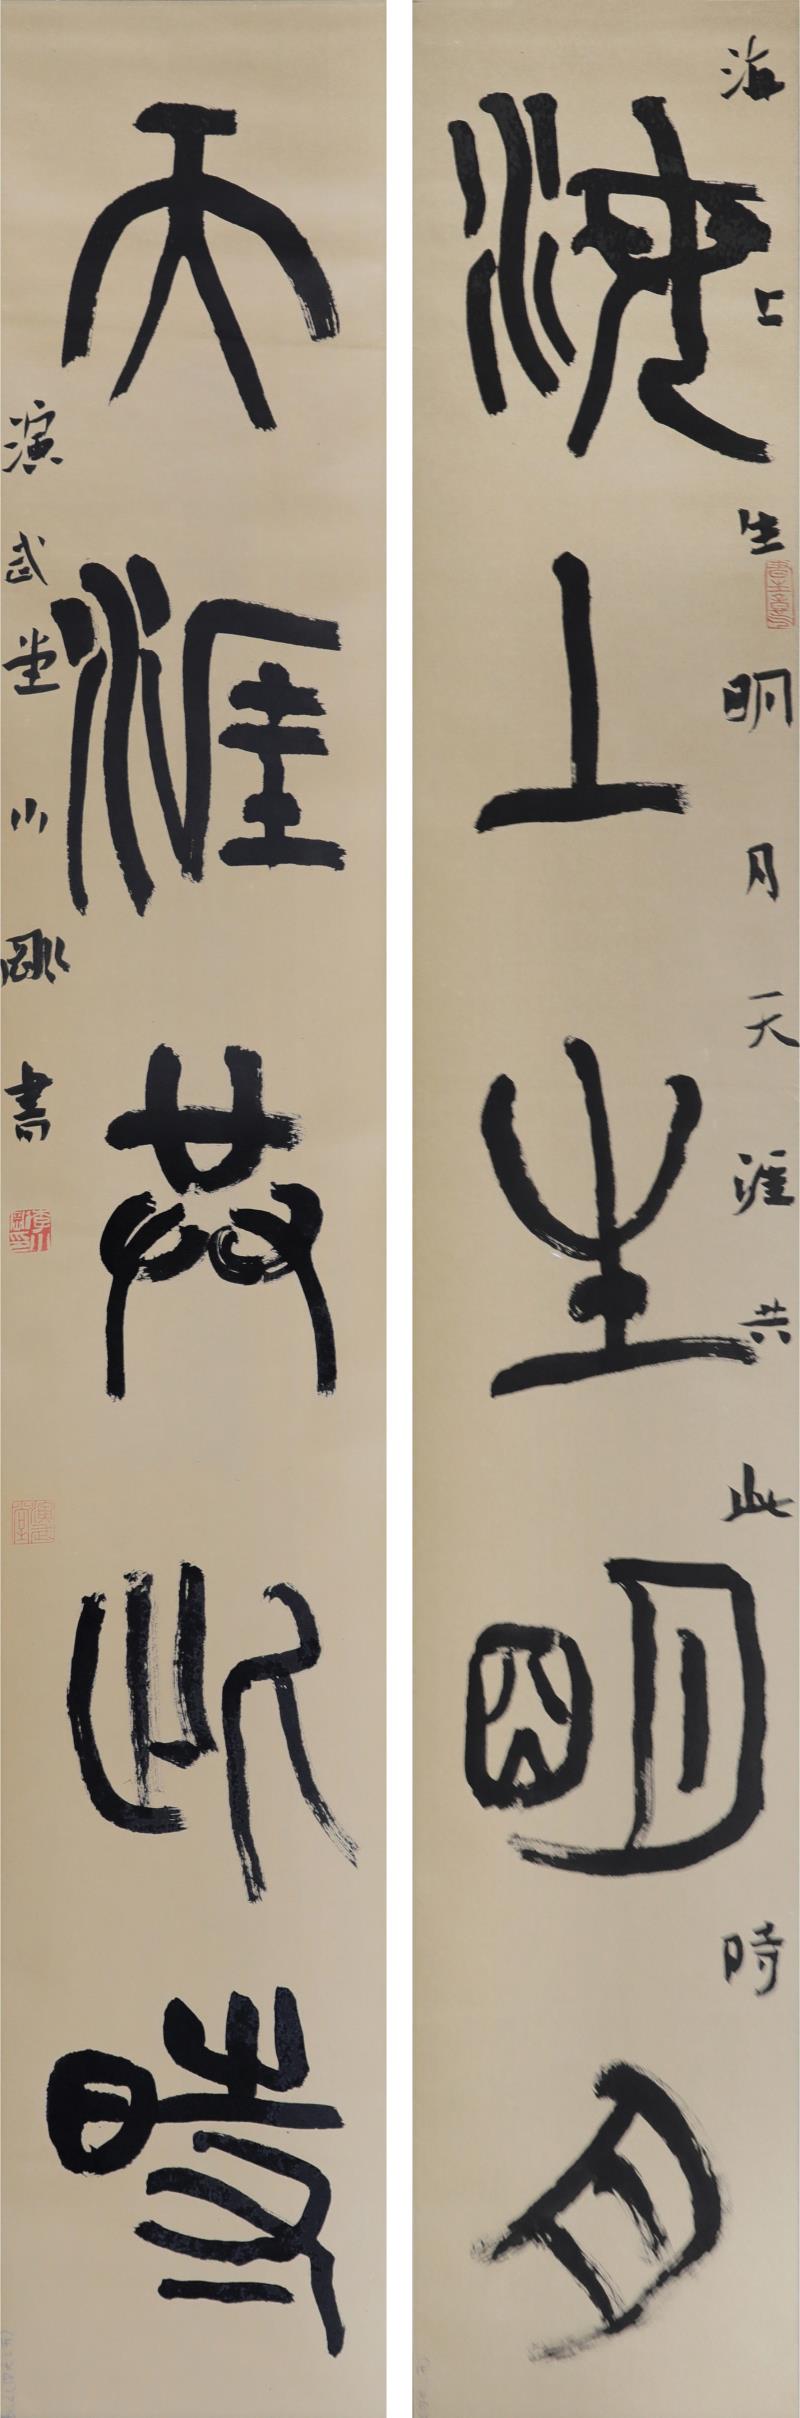 海上生明月天涯共此時
海上生明月
天涯共此時
演武堂小剛書